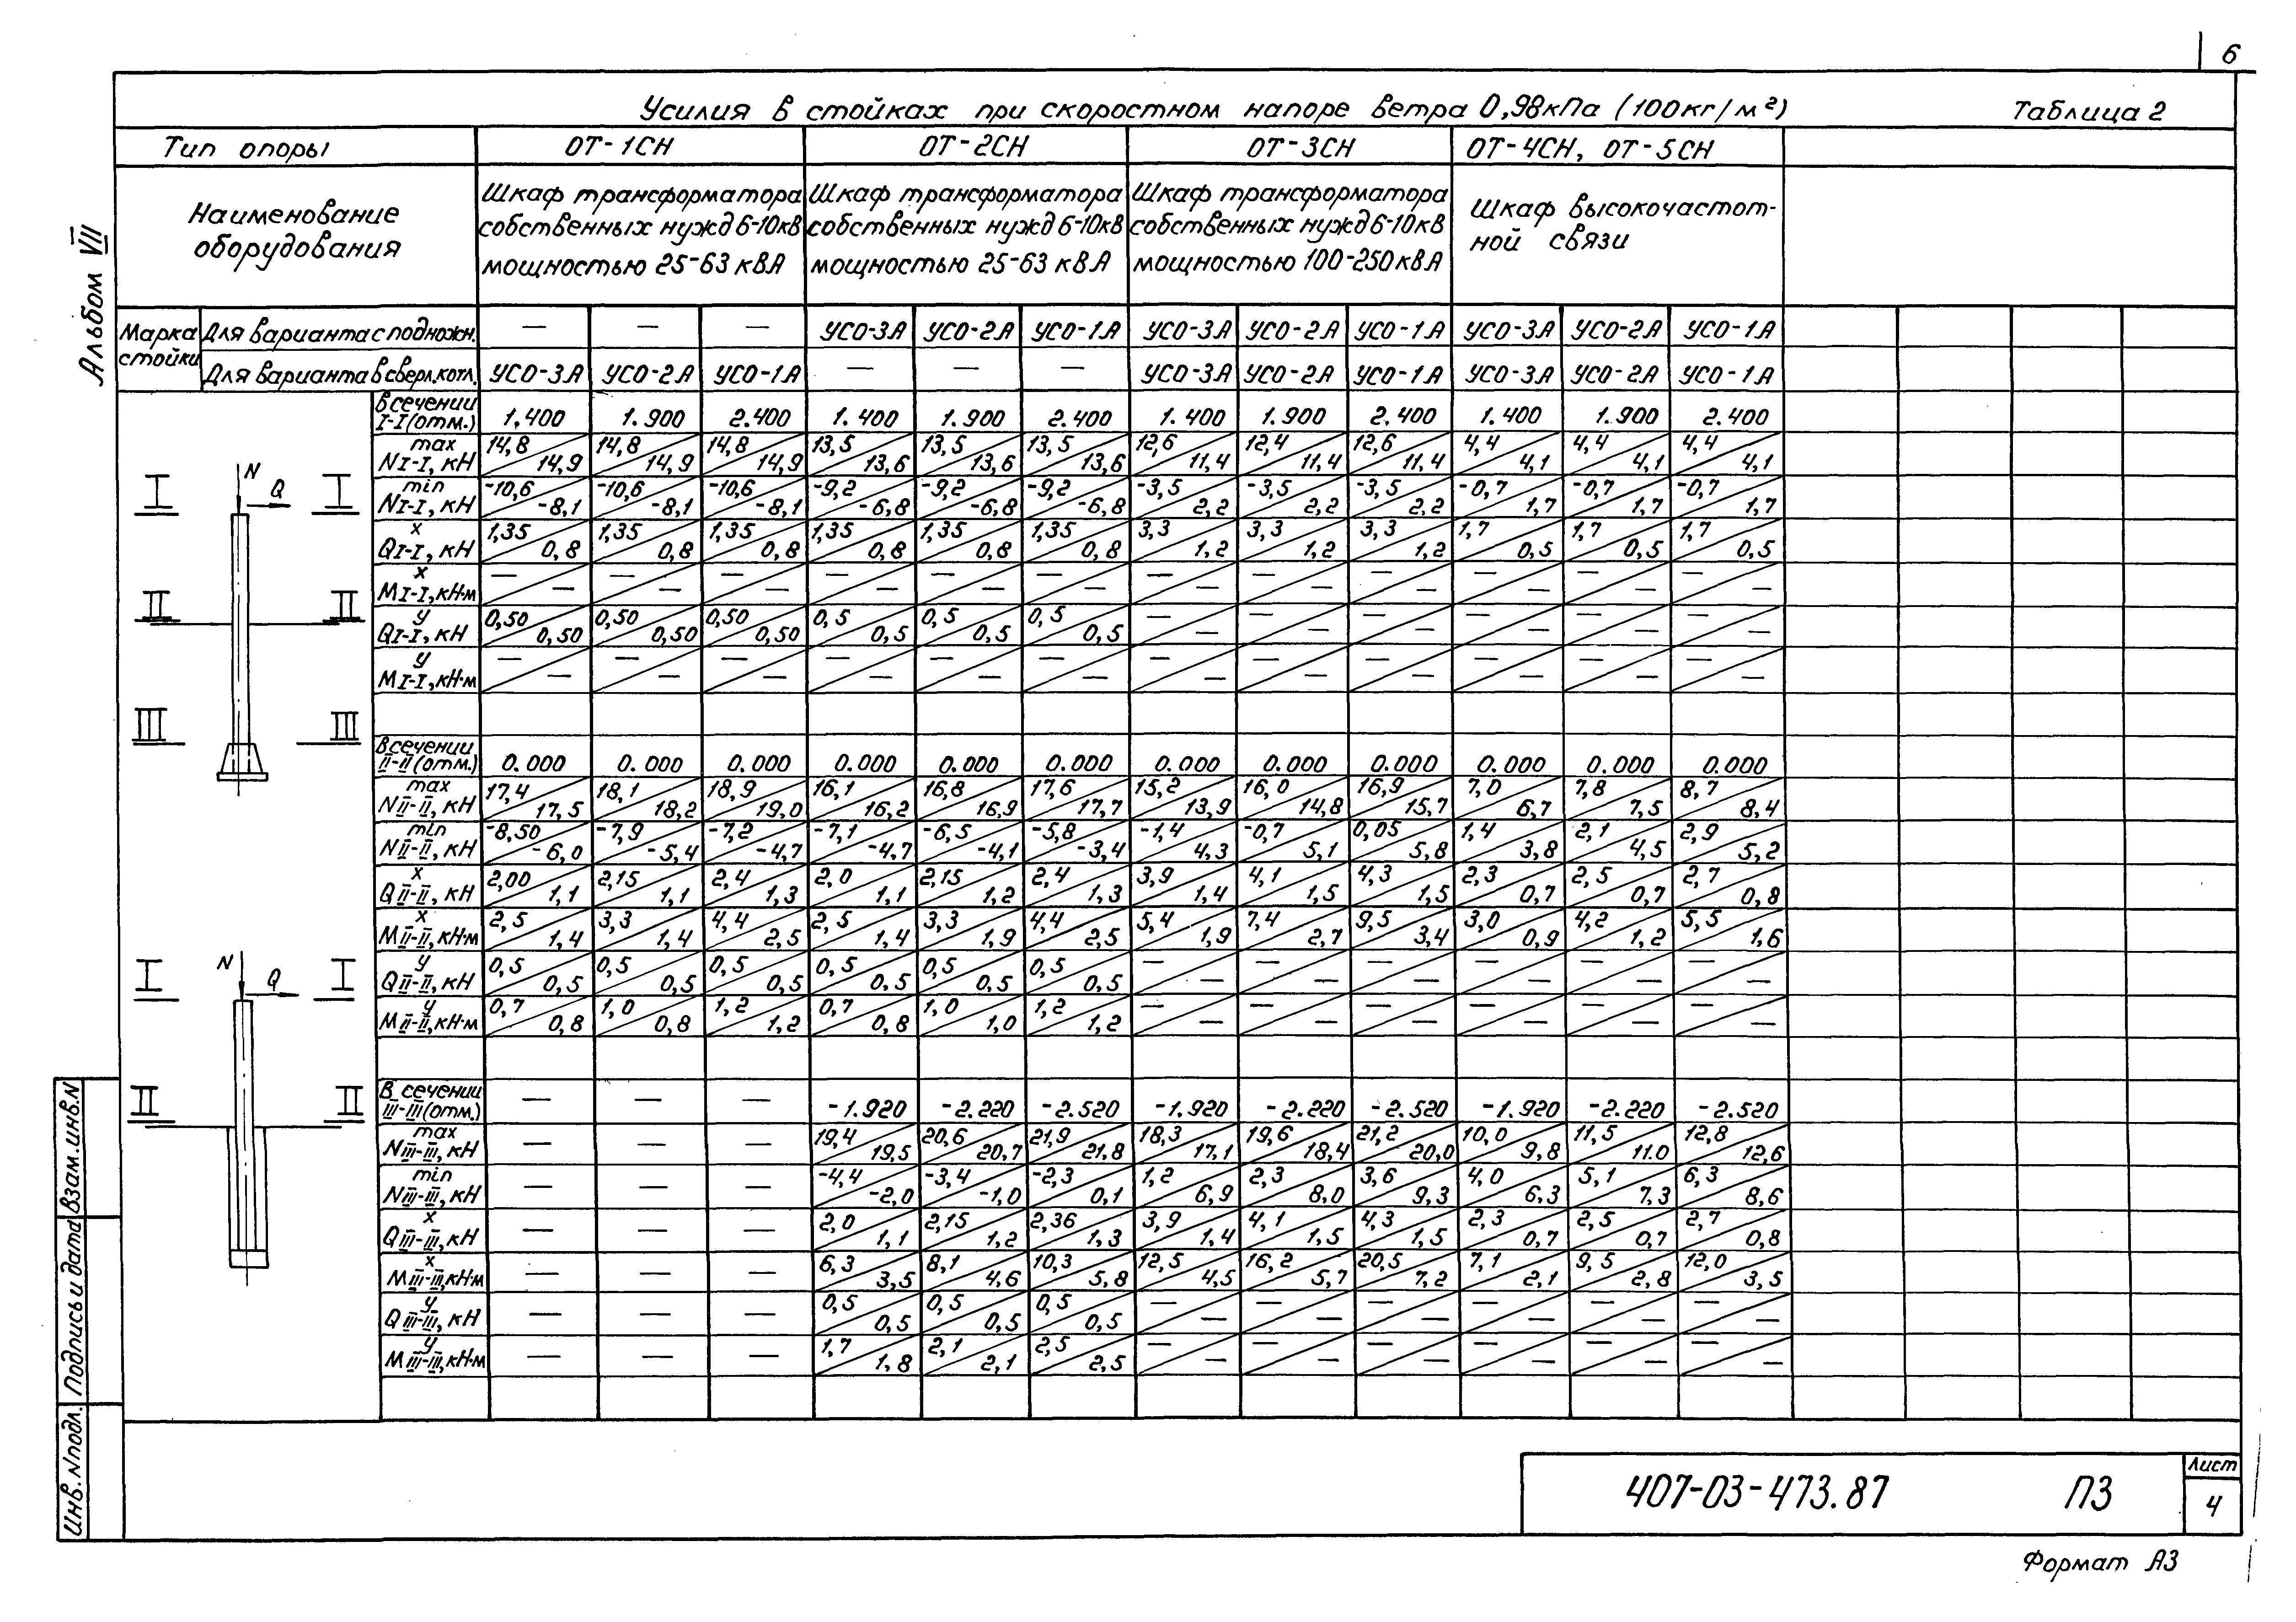 6
Усилия в стойках при скоростном напоре ветра 0,98кПа (100кг/м²) Таблица 2
Альбом VII
Тип опоры ОТ-1СН ОТ-2СН ОТ-3СН ОТ-4СН, ОТ-5СН
Наименование оборудования
Шкаф трансформатора собственных нужд 6-10кВ мощностью 25-63 кВА
Шкаф трансформатора собственных нужд 6-10кВ мощностью 25-63 кВА
Шкаф трансформатора собственных нужд 6-10кВ мощностью 100-250кВА
Шкаф высокочастотной связи
Марка стойки
Для варианта с подножн. — — — УСО-3А УСО-2А УСО-1А УСО-3А УСО-2А УСО-1А УСО-3А УСО-2А УСО-1А
Для варианта в сверл.котл. УСО-3А УСО-2А УСО-1А — — — УСО-3А УСО-2А УСО-1А УСО-3А УСО-2А УСО-1А
В сечении I-I (отм.) 1.400 1.900 2.400 1.400 1.900 2.400 1.400 1.900 2.400 1.400 1.900 2.400
max N I-I, кН 14,8/14,9 14,8/14,9 14,8/14,9 13,5/13,6 13,5/13,6 13,5/13,6 12,6/11,4 12,4/11,4 12,6/11,4 4,4/4,1 4,4/4,1 4,4/4,1
min N I-I, кН -10,6/-8,1 -10,6/-8,1 -10,6/-8,1 -9,2/-6,8 -9,2/-6,8 -9,2/-6,8 -3,5/2,2 -3,5/2,2 -3,5/2,2 -0,7/1,7 -0,7/1,7 -0,7/1,7
x Q I-I, кН 1,35/0,8 1,35/0,8 1,35/0,8 1,35/0,8 1,35/0,8 1,35/0,8 3,3/1,2 3,3/1,2 3,3/1,2 1,7/0,5 1,7/0,5 1,7/0,5
x M I-I, кН·м —/— —/— —/— —/— —/— —/— —/— —/— —/— —/— —/— —/—
y Q I-I, кН 0,50/0,50 0,50/0,50 0,50/0,50 0,5/0,5 0,5/0,5 0,5/0,5 —/— —/— —/— —/— —/— —/—
y M I-I, кН·м —/— —/— —/— —/— —/— —/— —/— —/— —/— —/— —/— —/—
В сечении II-II (отм.) 0.000 0.000 0.000 0.000 0.000 0.000 0.000 0.000 0.000 0.000 0.000 0.000
max N II-II, кН 17,4/17,5 18,1/18,2 18,9/19,0 16,1/16,2 16,8/16,9 17,6/17,7 15,2/13,9 16,0/14,8 16,9/15,7 7,0/6,7 7,8/7,5 8,7/8,4
min N II-II, кН -8,50/-6,0 -7,9/-5,4 -7,2/-4,7 -7,1/-4,7 -6,5/-4,1 -5,8/-3,4 -1,4/4,3 -0,7/5,1 0,05/5,8 1,4/3,8 2,1/4,5 2,9/5,2
x Q II-II, кН 2,00/1,1 2,15/1,1 2,4/1,3 2,0/1,1 2,15/1,2 2,4/1,3 3,9/1,4 4,1/1,5 4,3/1,5 2,3/0,7 2,5/0,7 2,7/0,8
x M II-II, кН·м 2,5/1,4 3,3/1,4 4,4/2,5 2,5/1,4 3,3/1,9 4,4/2,5 5,4/1,9 7,4/2,7 9,5/3,4 3,0/0,9 4,2/1,2 5,5/1,6
y Q II-II, кН 0,5/0,5 0,5/0,5 0,5/0,5 0,5/0,5 0,5/0,5 0,5/0,5 —/— —/— —/— —/— —/— —/—
y M II-II, кН·м 0,7/0,8 1,0/0,8 1,2/1,2 0,7/0,8 1,0/1,0 1,2/1,2 —/— —/— —/— —/— —/— —/—
В сечении III-III (отм.) — — — -1.920 -2.220 -2.520 -1.920 -2.220 -2.520 -1.920 -2.220 -2.520
max N III-III, кН — — — 19,4/19,5 20,6/20,7 21,9/21,8 18,3/17,1 19,6/18,4 21,2/20,0 10,0/9,8 11,5/11.0 12,8/12,6
min N III-III, кН — — — -4,4/-2,0 -3,4/-1,0 -2,3/0,1 1,2/6,9 2,3/8,0 3,6/9,3 4,0/6,3 5,1/7,3 6,3/8,6
x Q III-III, кН — — — 2,0/1,1 2,15/1,2 2,36/1,3 3,9/1,4 4,1/1,5 4,3/1,5 2,3/0,7 2,5/0,7 2,7/0,8
x M III-III, кН·м — — — 6,3/3,5 8,1/4,6 10,3/5,8 12,5/4,5 16,2/5,7 20,5/7,2 7,1/2,1 9,5/2,8 12,0/3,5
y Q III-III, кН — — — 0,5/0,5 0,5/0,5 0,5/0,5 —/— —/— —/— —/— —/— —/—
y M III-III, кН·м — — — 1,7/1,8 2,1/2,1 2,5/2,5 —/— —/— —/— —/— —/— —/—
N Q
I I
II II
III III
N Q
I I
II II
Инв. N подл. Подпись и дата Взам.инв.N
407-03-473.87 ПЗ
Лист
4
Формат А3